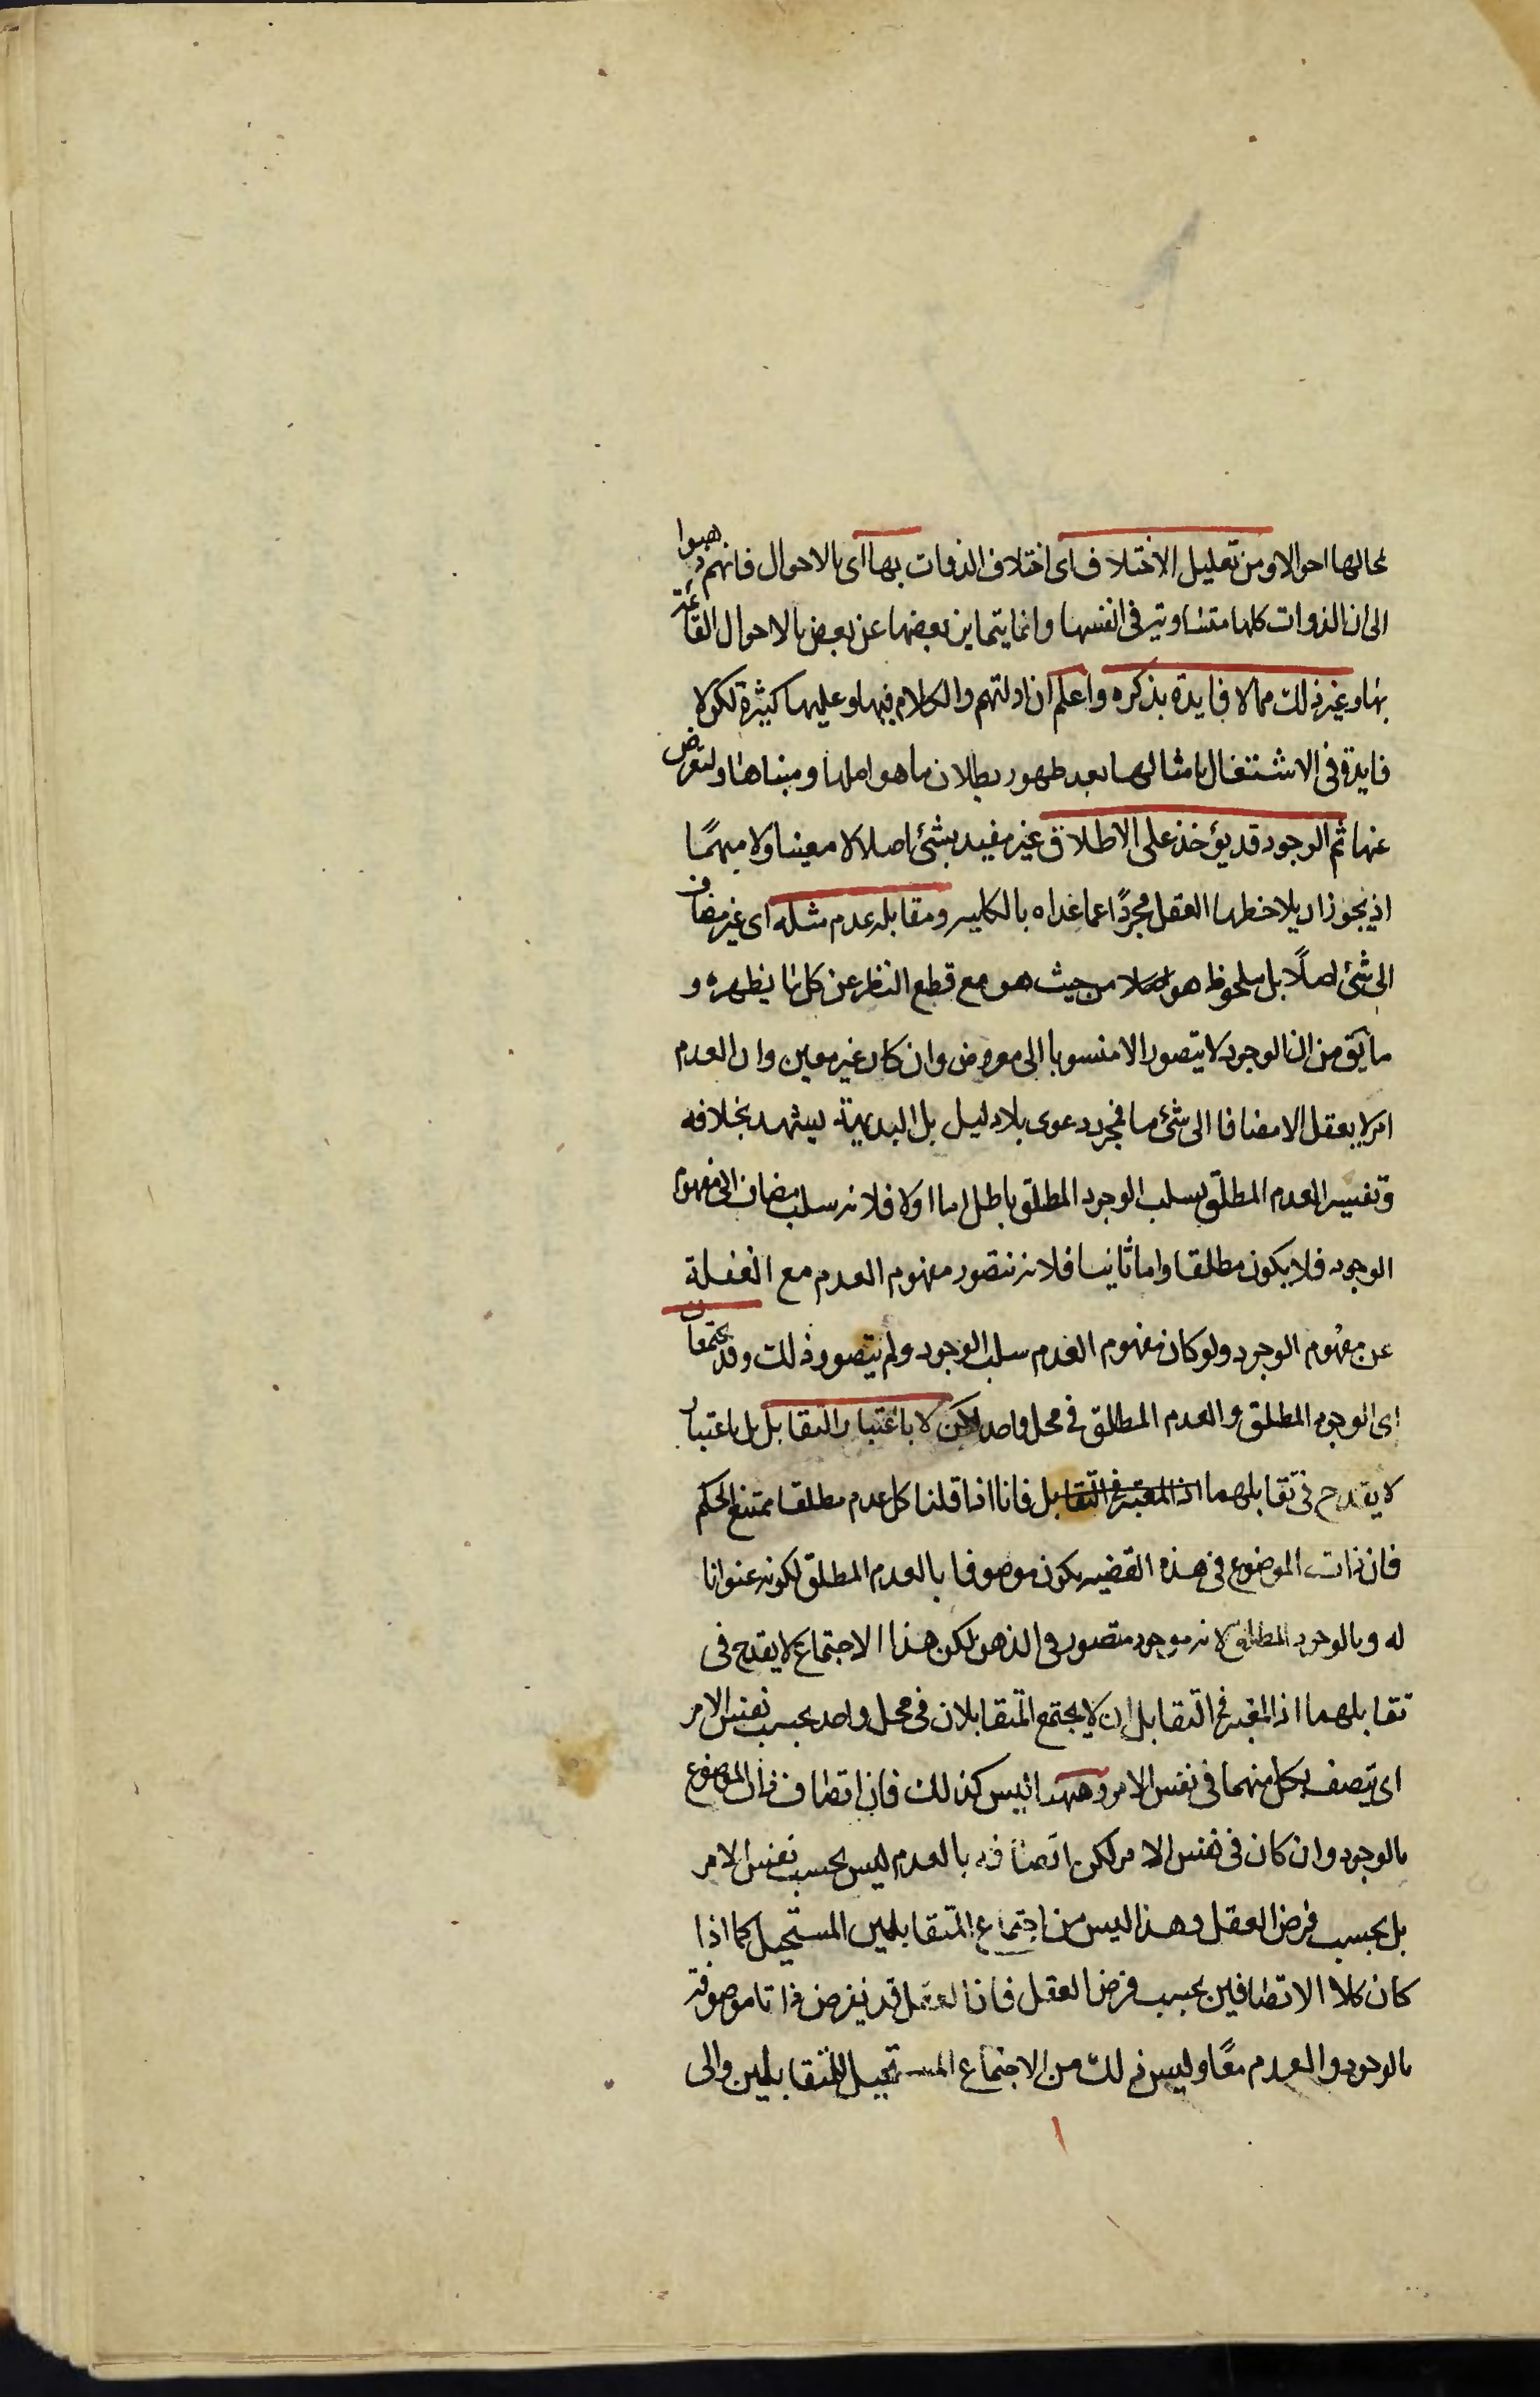 محالها احوالا ومن تعليل الاختلاف اى اختلاف الذوات بها اى بالاحوال فانهم ذهبوا
الى ان الذوات كلها متساوية فى انفسها وانما يتماين بعضها عن بعض بالاحوال القائمة
بها وغير ذلك مما لا فايدة بذكره واعلم ان ادلتهم والكلام فيها وعليها كثيرة لكن لا
فايدة فى الاشتغال بامثالها بعد ظهور بطلان ما هو اصلها ومبناها ولنعرض
عنها ثم الوجود قد يؤخذ على الاطلاق غير مقيد بشئ اصلا لا معينا ولا مبهمًا
اذ يجوز ان يلاحظه العقل مجردًا عما عداه بالكليه ومقابله عدم مثله اى غير مضاف
الى شئ اصلًا بل ملحوظ هو من حيث هو مع قطع النظر عن كل ما يظهره و
ما يق من ان الوجود لا يتصور الا منسوبا الى معروض وان كان غير معين وان العدم
امر لا يعقل الا مضافا الى شئ ما فمجرد دعوى بلا دليل بل البديهة يشهد بخلافه
وتفسير العدم المطلق بسلب الوجود المطلق باطل اما اولا فلانه سلب مضاف الى مفهوم
الوجود فلا يكون مطلقا واما ثانيا فلانه نتصور مفهوم العدم مع الغفلة
عن مفهوم الوجود ولو كان مفهوم العدم سلب الوجود ولم يتصور ذلك وقد يجتمعان
اى الوجود المطلق والعدم المطلق فى محل واحد لكن لا باعتبار التقابل بل باعتبار
لا يقدح فى تقابلهما اذ المعتبر فى التقابل فانا اذا قلنا كل عدم مطلقا ممتنع الحكم
فان ذات الموضوع فى هذه القضيه يكون موصوفا بالعدم المطلق لكونه عنوانا
له وبالوجود المطلق لانه موجود متصور فى الذهن لكن هذا الاجتماع لا يقدح فى
تقابلهما اذ المعتبر فى التقابل ان لا يجتمع المتقابلان فى محل واحد بحسب نفس الامر
اى يتصف بكل منهما فى نفس الامر وههنا ليس كذلك فان اتصاف ذات الموضوع
بالوجود وان كان فى نفس الامر لكن اتصافه بالعدم ليس بحسب نفس الامر
بل بحسب فرض العقل وهذا ليس من اجتماع المتقابلين المستحيل كما اذا
كان كلا الاتصافين بحسب فرض العقل فان العقل قد يفرض ذاتا موصوفة
بالوجود والعدم معًا وليس ذلك من الاجتماع المستحيل للمتقابلين والى